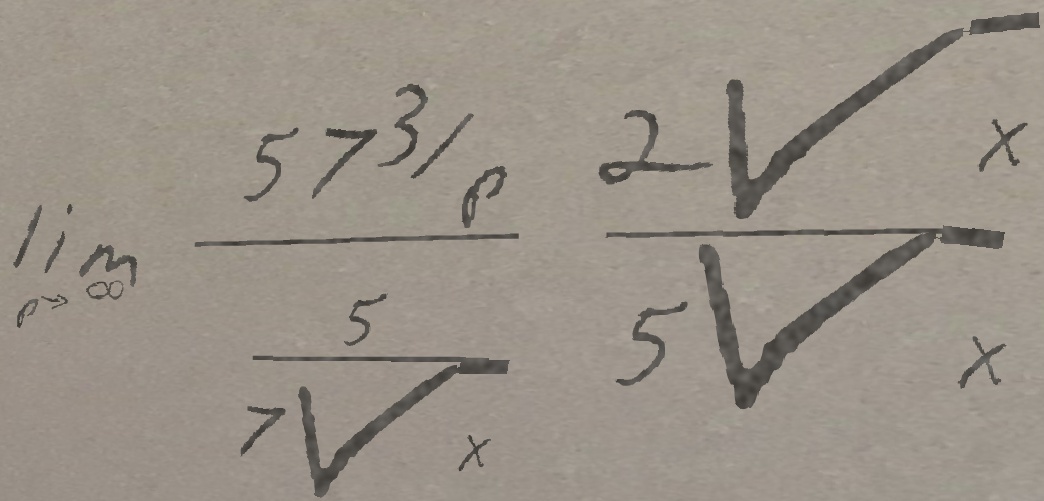 \lim_{p \to \infty} \frac{57^{3/p}}{\frac{5}{7\sqrt{x}}} \frac{2\sqrt{x}}{5\sqrt{x}}